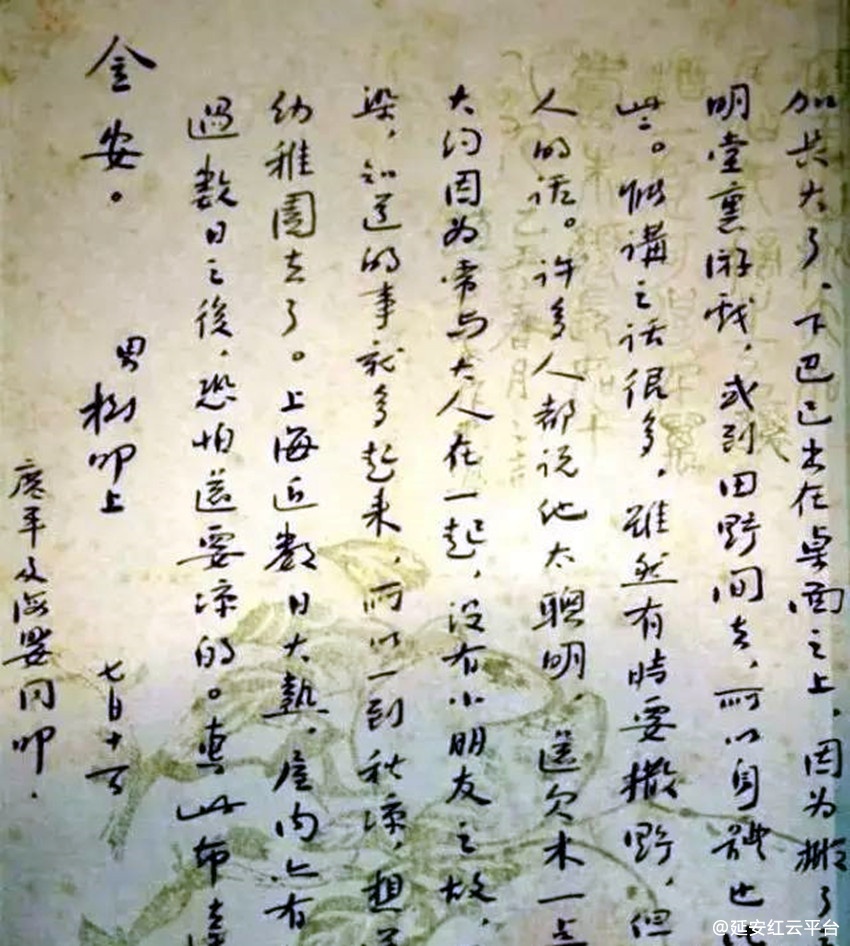 加長大了、下巴已出在桌面之上，因为搬了
明堂裏游戏，或到田野间去，所以身體也
些。能講之话很多，雖然有時要撒野，但
人的话。许多人都说他太聰明，還欠木一点
大约因为常与大人在一起，没有小朋友之故，
染，知道的事就多起来，所以一到秋凉，想送
幼稚園去了。上海近數日大熱，屋内亦有
過數日之後，恐怕還要凉的。專此布達
金安。
男樹叩上 七月十一日
廣平及海嬰同叩.
@延安红云平台